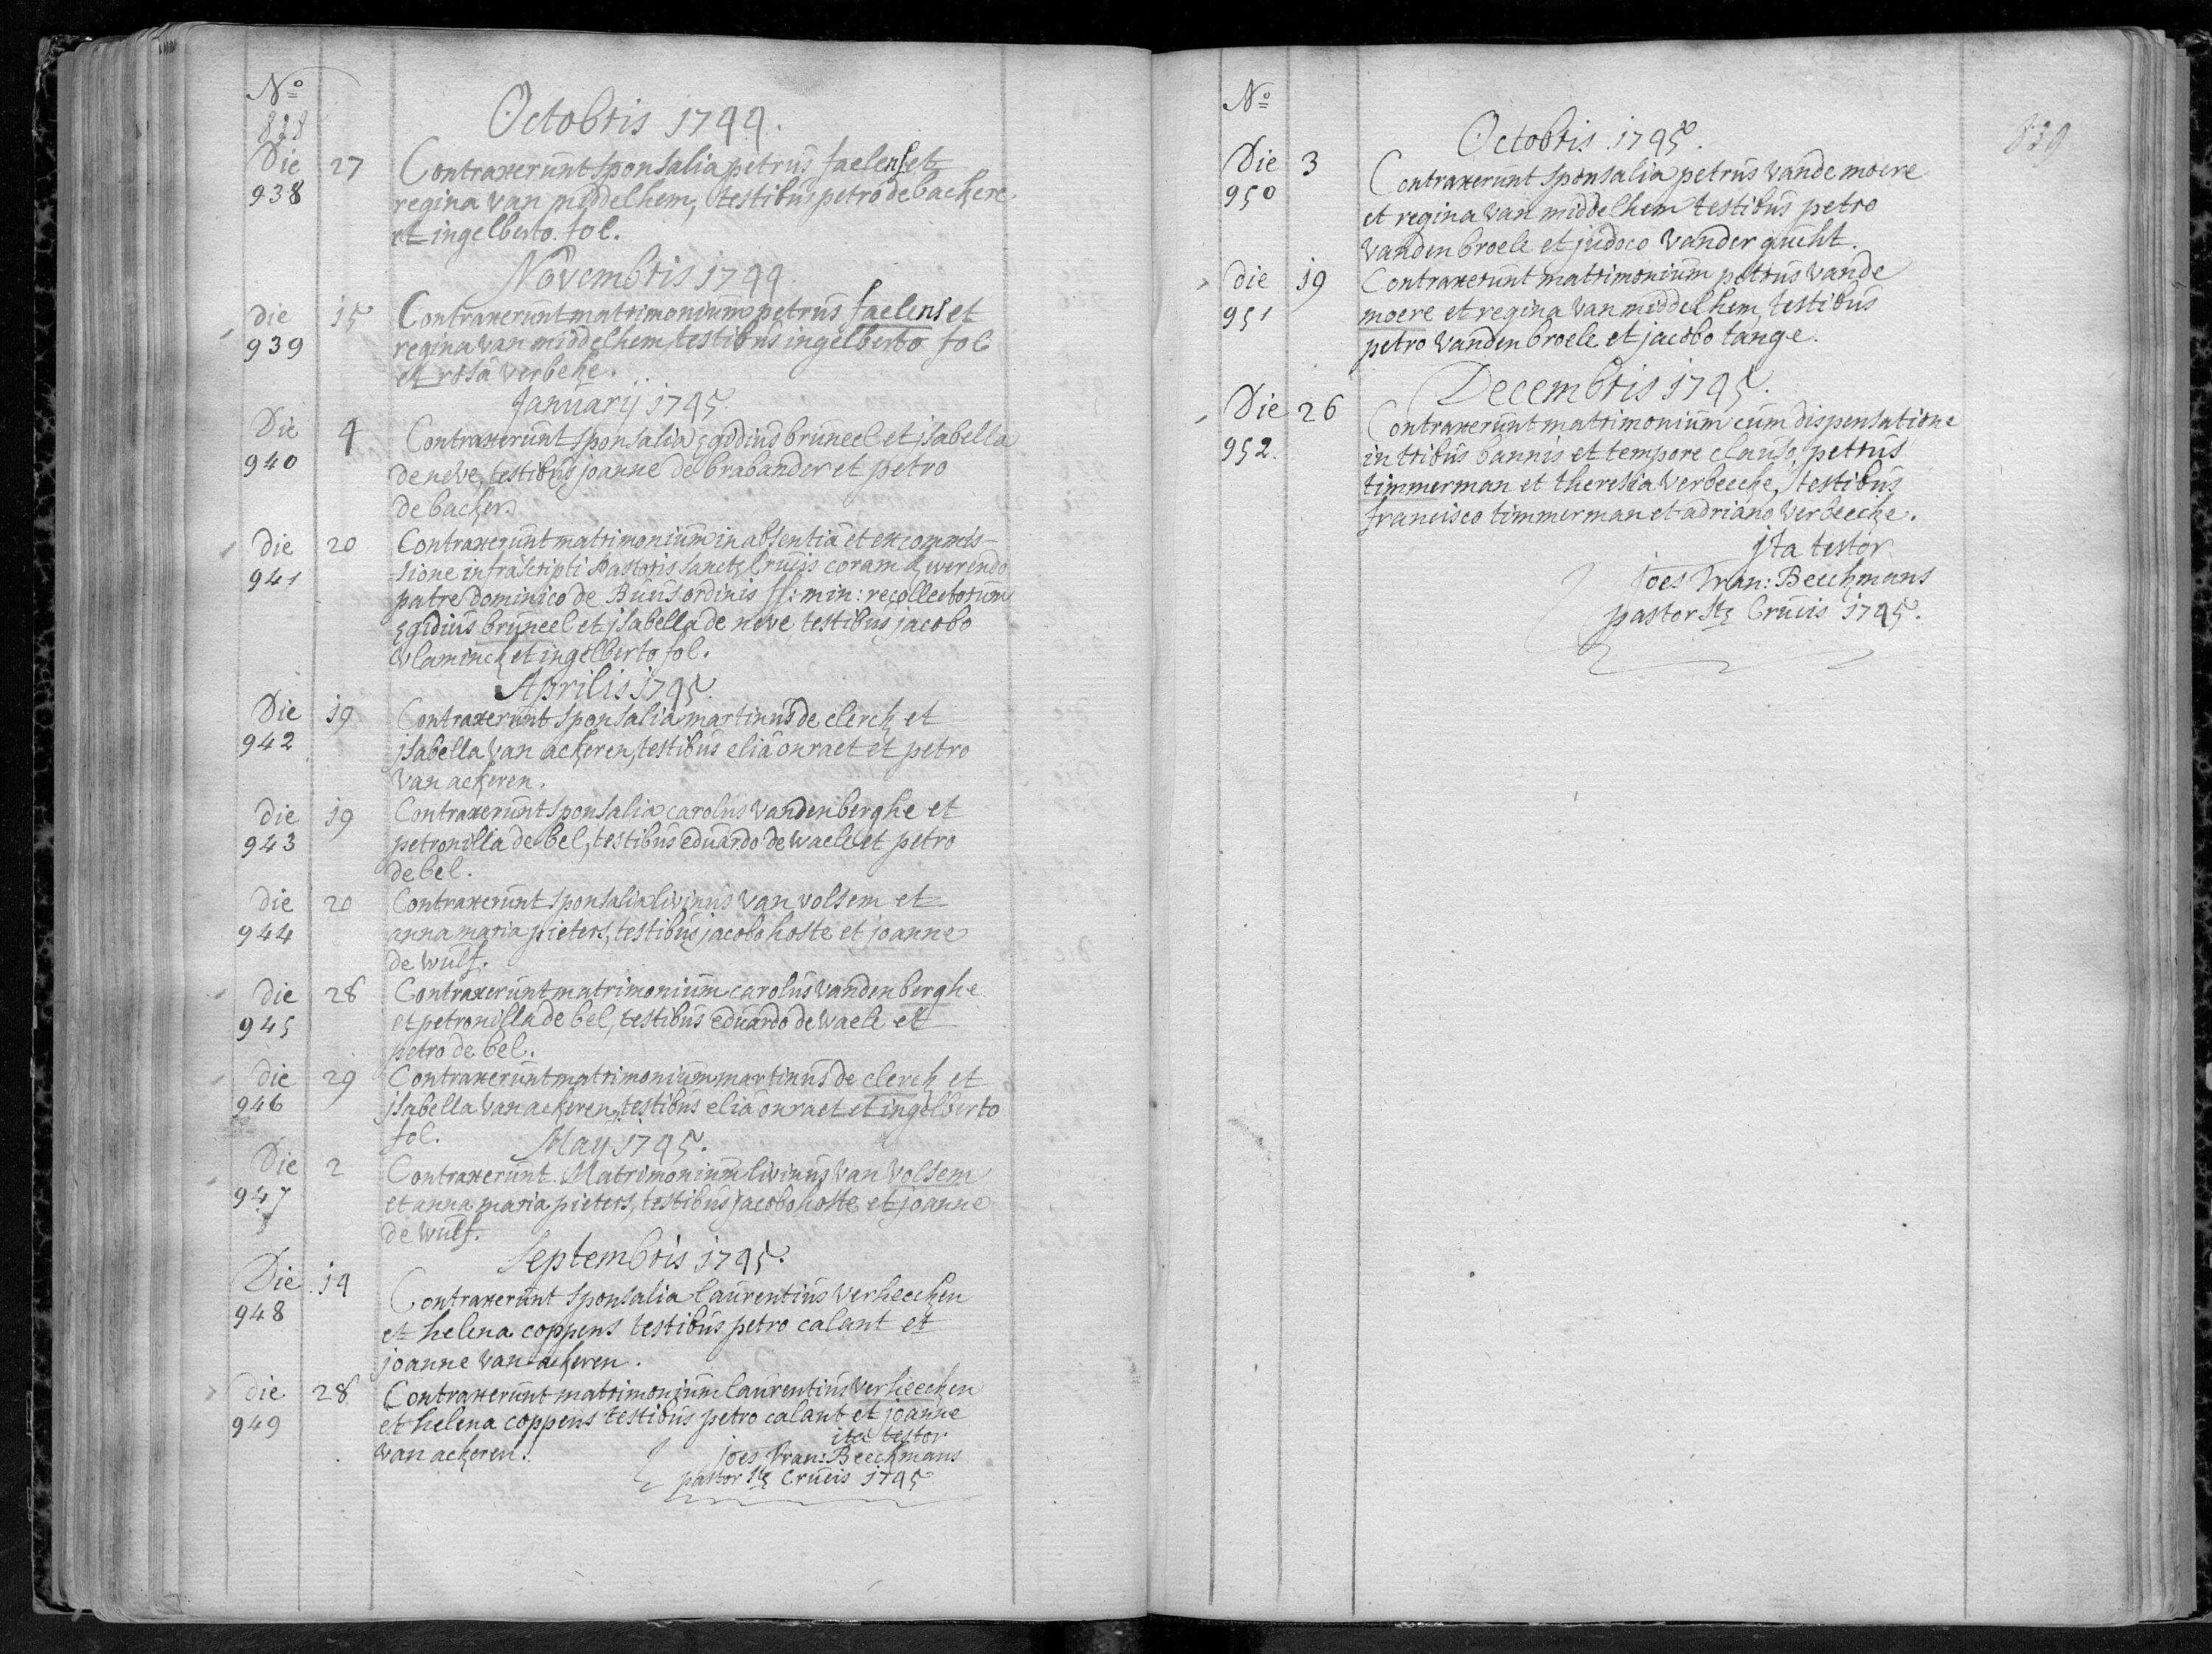 No
828
Octobris 1794.
Die 27 Contraxerunt sponsalia petrus faelens et
938 regina van middelhem, testibus petro de backere
et ingelberto fol.
Novembris 1794
Die 15 Contraxerunt matrimonium petrus faelens et
939 regina van middelhem, testibus ingelberto fol
et rosa verbeke.
January 1795
Die 4 Contraxerunt sponsalia Egidius bruneel et isabella
940 de neve, testibus joanne de brabander et petro
de backer.
die 20 Contraxerunt matrimonium in absentia et ex commis-
941 sione infrascripti Pastoris sanctæ Crucis coram
patre dominico de Buus ordinis ff: min: recollectorum
Egidius bruneel et isabella de neve, testibus jacobo
vlaminck et ingelberto fol.
Aprilis 1795.
Die 19 Contraxerunt sponsalia martinus de clerck et
942 isabella van ackeren, testibus elia onraet et petro
van ackeren.
die 19 Contraxerunt sponsalia carolus vandenberghe et
943 petronilla de bel, testibus eduardo de waele et petro
de bel.
die 20 Contraxerunt sponsalia livinus van volsem et
944 anna maria pieters, testibus jacobo hoste et joanne
de wulf.
die 28 Contraxerunt matrimonium carolus vandenberghe
945 et petronilla de bel, testibus eduardo de waele et
petro de bel.
die 29 Contraxerunt matrimonium martinus de clerck et
946 isabella van ackeren, testibus elia onraet et ingelberto
fol. May 1795.
Die 2 Contraxerunt Matrimonium livinus van volsem
947 et anna maria pieters, testibus jacobo hoste et joanne
de wulf.
Septembris 1795.
Die 14 Contraxerunt sponsalia laurentius verheecken
948 et helena coppens testibus petro calant et
joanne van ackeren.
die 28 Contraxerunt matrimonium laurentius verheecken
949 et helena coppens testibus petro calant et joanne
van ackeren. ita testor
joes Fran: Beeckmans
pastor Stæ Crucis 1795
No
829
Octobris 1795.
Die 3 Contraxerunt sponsalia petrus vande moere
950 et regina van middelhem testibus petro
vanden broele et judoco vander gucht.
die 19 Contraxerunt matrimonium petrus vande
951 moere et regina van middelhem, testibus
petro vanden broele et jacobo tange.
Decembris 1795.
Die 26 Contraxerunt matrimonium cum dispensatione
952. in tribus bannis et tempore clauso, petrus
timmerman et theresia verbeecke, testibus
francisco timmerman et adriano verbeecke.
ita testor
joes Fran: Beeckmans
pastor Stæ Crucis 1795.